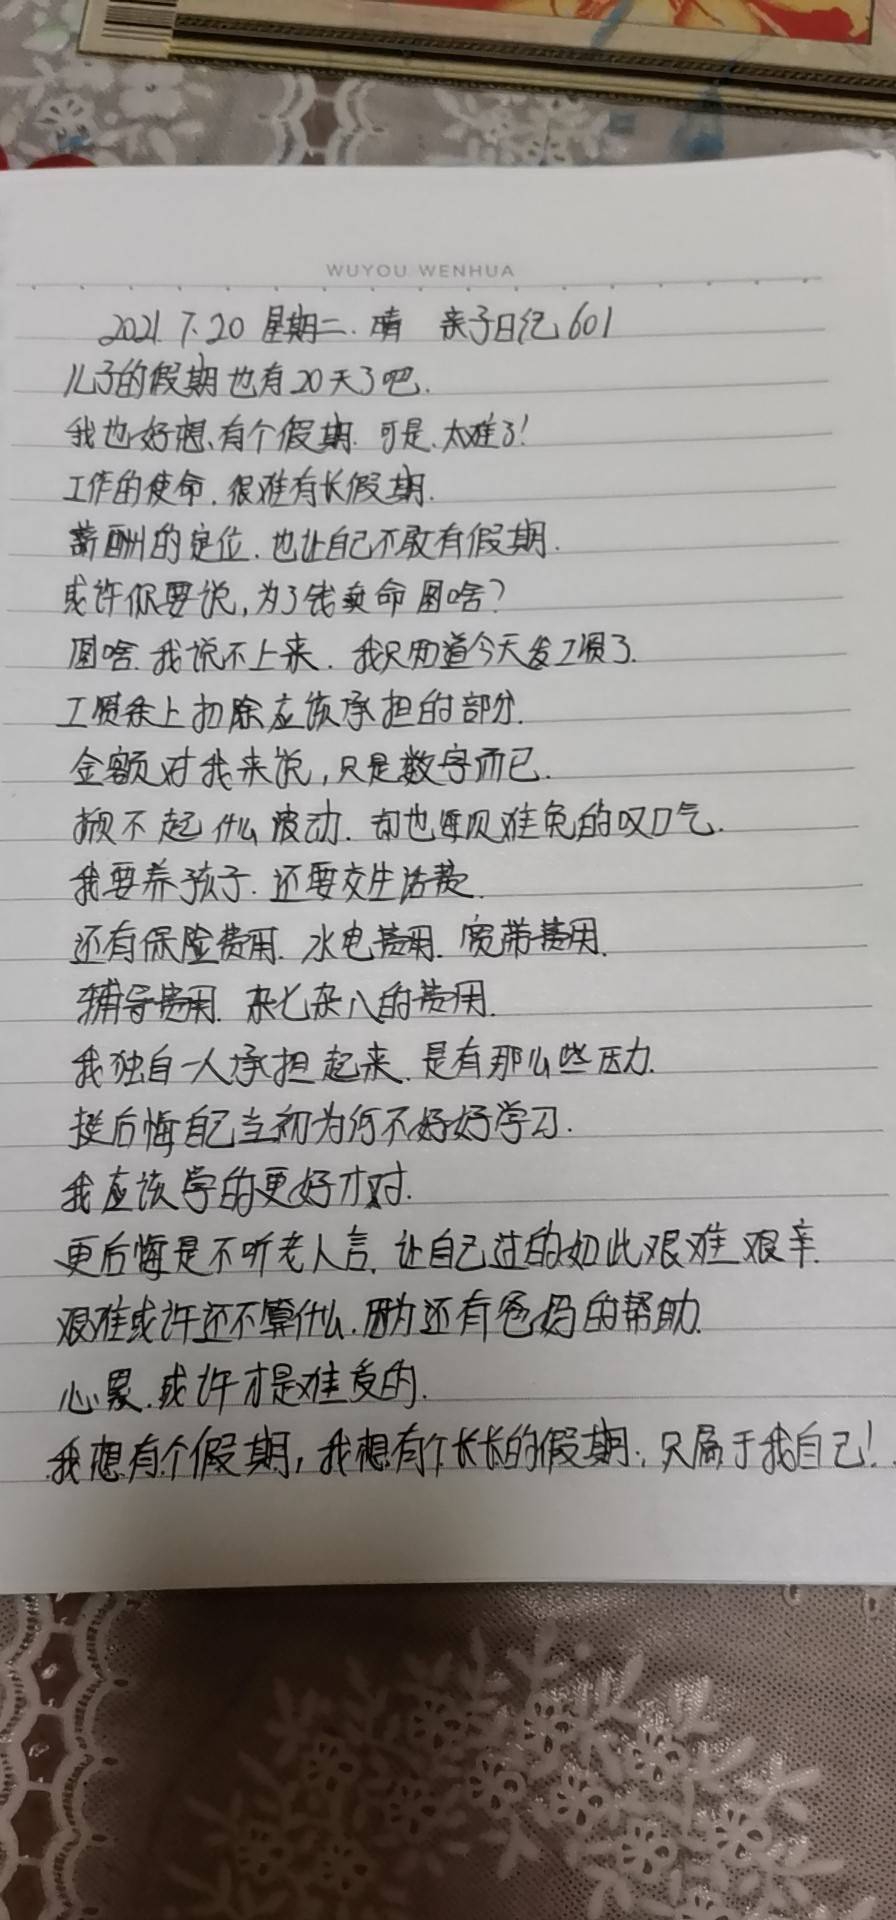 WUYOU WENHUA
2021.7.20 星期二. 晴 亲子日记601
儿子的假期也有20天了吧.
我也好想有个假期. 可是.太难了!
工作的使命.很难有长假期.
薪酬的定位.也让自己不敢有假期.
或许你要说,为了钱卖命图啥?
图啥.我说不上来.我只知道今天发工资了.
工资条上扣除应该承担的部分.
金额对我来说,只是数字而已.
掀不起什么波动.却也难免的叹口气.
我要养孩子.还要交生活费.
还有保险费用.水电费用.宽带费用.
辅导费用.杂七杂八的费用.
我独自一人承担起来.是有那么些压力.
挺后悔自己当初为何不好好学习.
我应该学的更好才对.
更后悔是不听老人言.让自己过的如此艰难艰辛.
艰难或许还不算什么.因为还有爸妈的帮助.
心累.或许才是难受的.
我想有个假期,我想有个长长的假期.,只属于我自己!